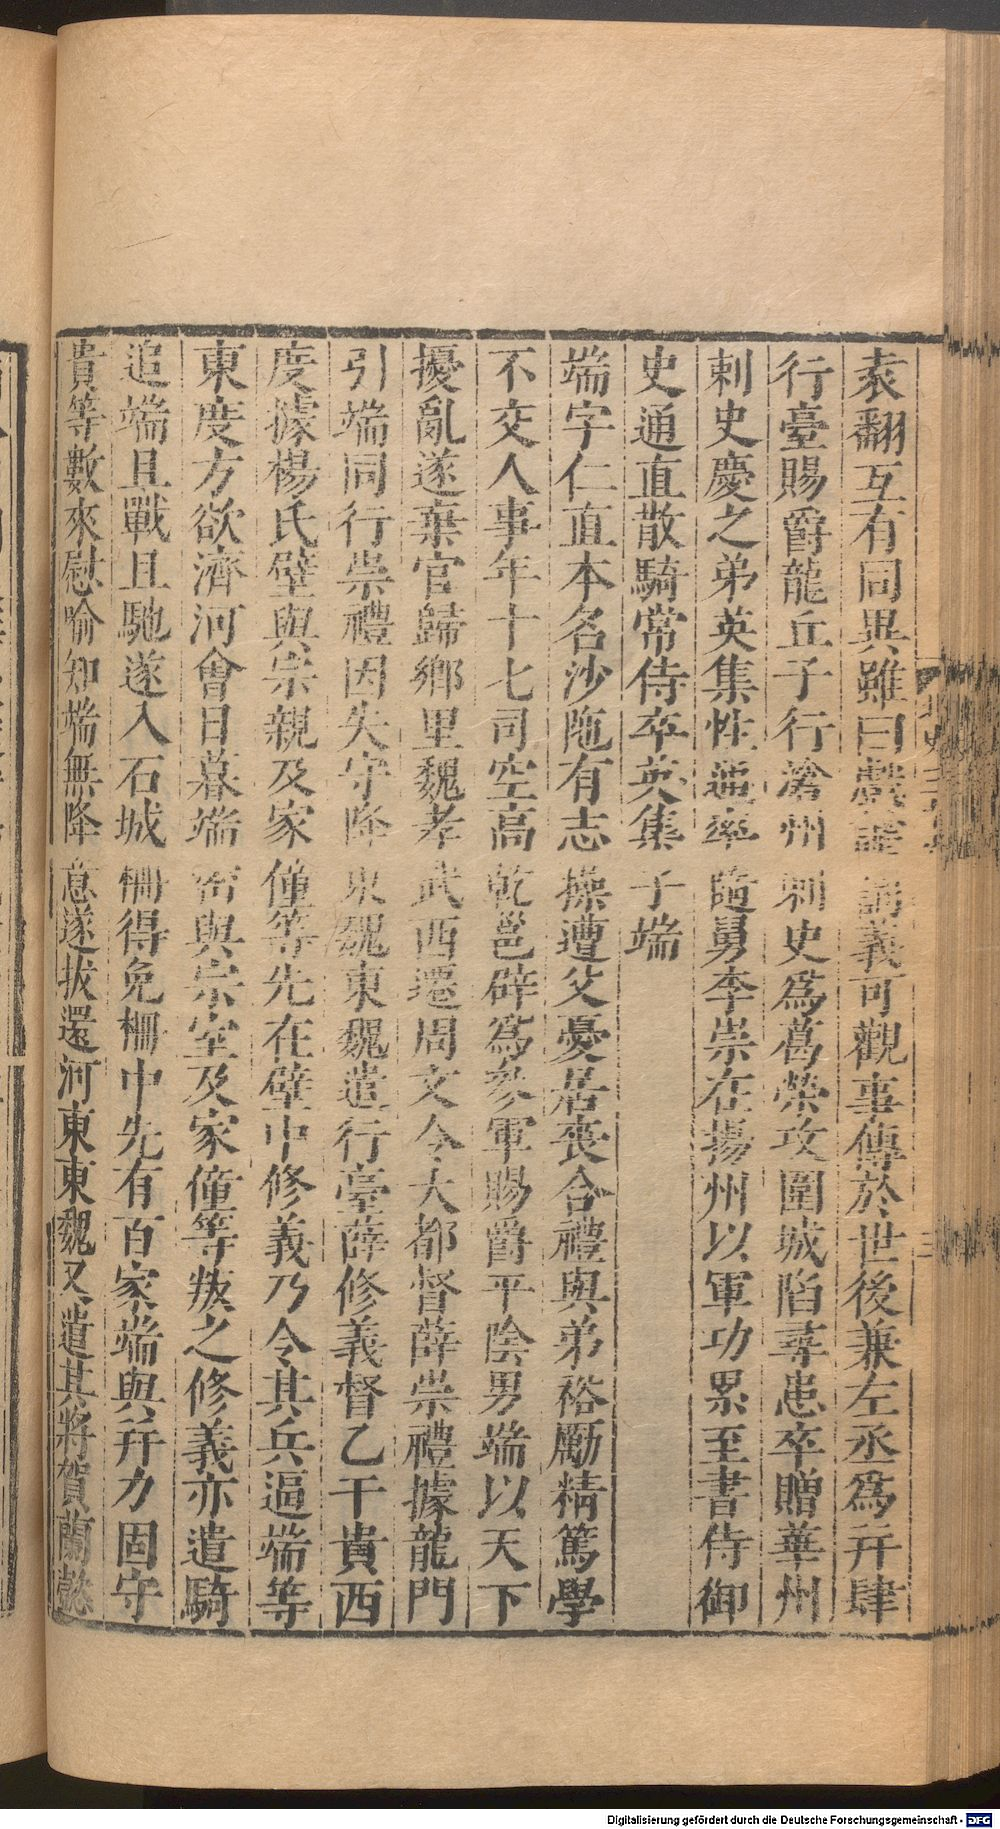 袁翻互有同異雖曰戲謔詞義可觀事傳於世後兼左丞爲幷肆
行臺賜爵龍丘子行滄州刺史爲葛榮攻圍城陷尋患卒贈華州
刺史慶之弟英集性通率隨舅李崇在揚州以軍功累至書侍御
史通直散騎常侍卒英集子端
端字仁直本名沙陁有志操遭父憂居喪合禮與弟裕勵精篤學
不交人事年十七司空高乾邕辟爲參軍賜爵平陰男端以天下
擾亂遂棄官歸鄉里魏孝武西遷周文令大都督薛崇禮據龍門
引端同行崇禮因失守降東魏東魏遣行臺薛修義督乙干貴西
度據楊氏壁與宗親及家僮等先在壁中修義乃令其兵逼端等
東度方欲濟河會日暮端密與宗室及家僮等叛之修義亦遣騎
追端且戰且馳遂入石城柵得免柵中先有百家端與幷力固守
貴等數來慰喻知端無降意遂拔還河東東魏又遣其將賀蘭懿
Digitalisierung gefördert durch die Deutsche Forschungsgemeinschaft - DFG